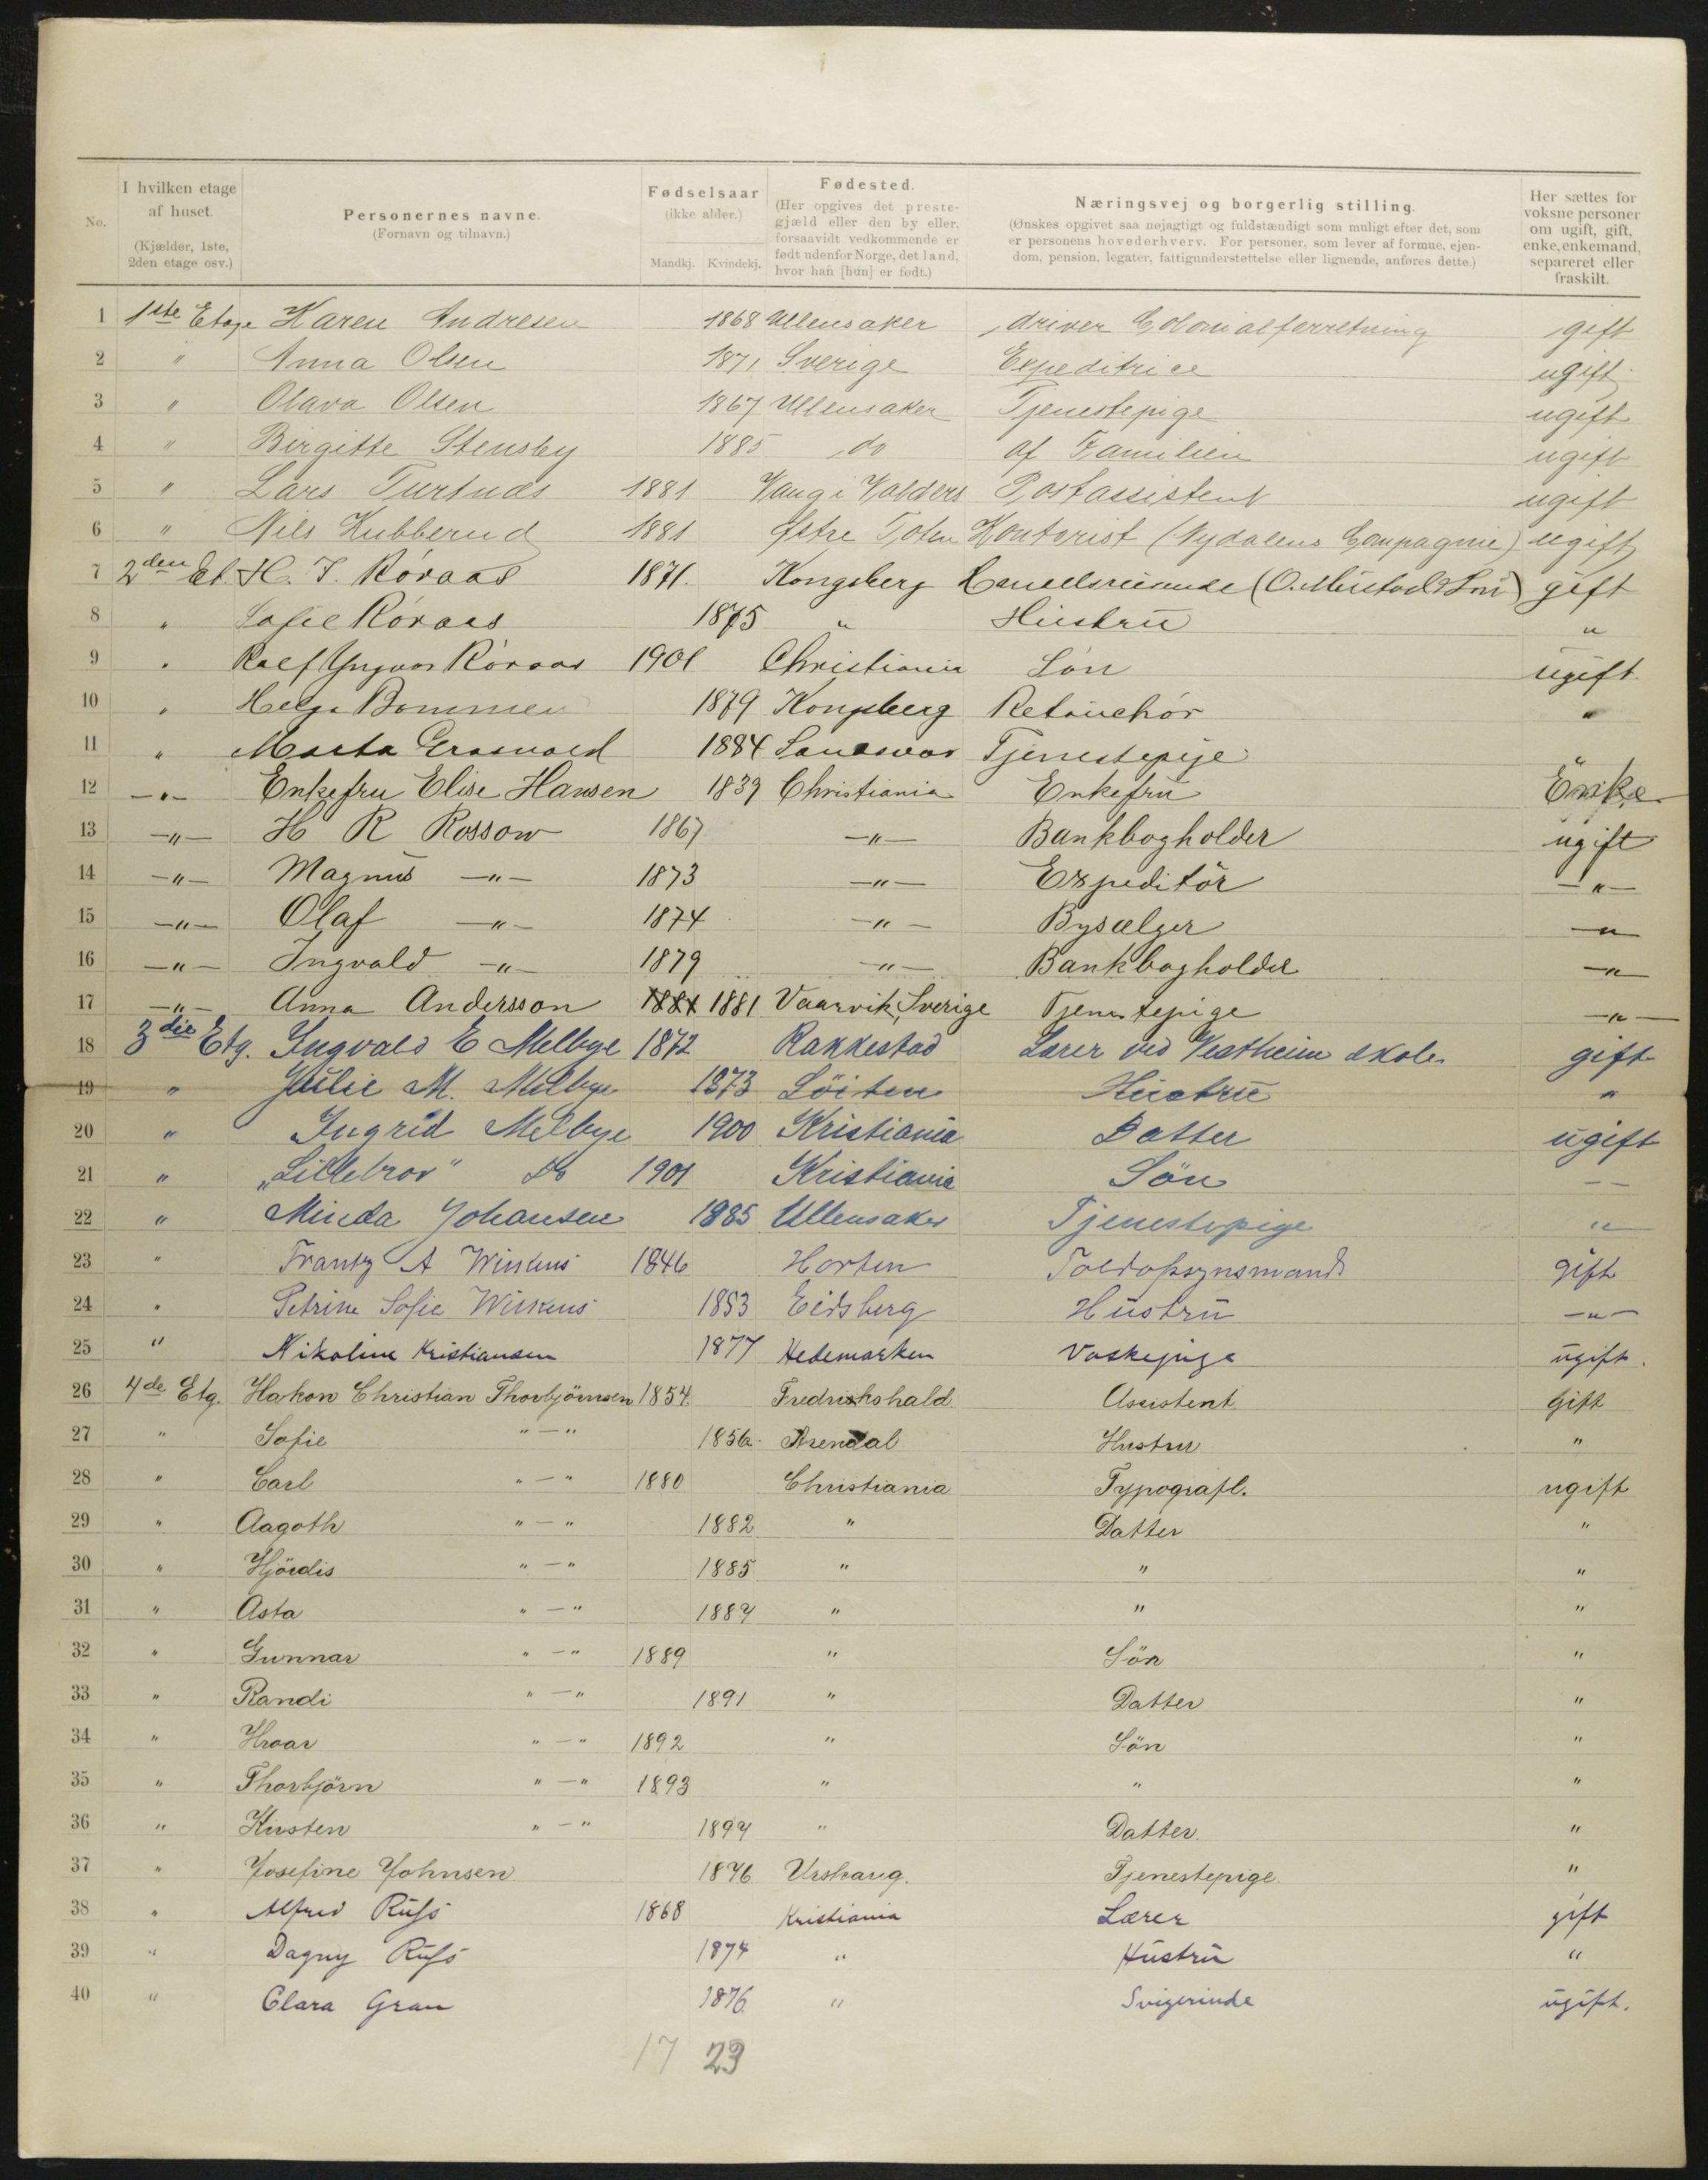 No.
I hvilken etage af huset. (Kjælder, 1ste, 2den etage osv.)
Personernes navne. (Fornavn og tilnavn.)
Fødselsaar (ikke alder.) Mandkj. Kvindekj.
Fødested. (Her opgives det prestegjæld eller den by eller, forsaavidt vedkommende er født udenfor Norge, det land, hvor han [hun] er født.)
Næringsvej og borgerlig stilling. (Ønskes opgivet saa nøjagtigt og fuldstændigt som muligt efter det, som er personens hovederhverv. For personer, som lever af formue, ejendom, pension, legater, fattigunderstøttelse eller lignende, anføres dette.)
Her sættes for voksne personer om ugift, gift, enke, enkemand, separeret eller fraskilt.
1 1ste Etage Karen Andresen 1868 Ullensaker driver Colonialforretning gift
2 " Anna Olsen 1871 Sverige Expeditrice ugift
3 " Olava Olsen 1867 Ullensaker Tjenestepige ugift
4 " Birgitte Stensby 1885 do af Familien ugift
5 " Lars 1881 Vang i Valders Postassistent ugift
6 " Nils Kubberud 1881 Østre Toten Kontorist (Nydalens Compagnie) ugift
7 2den Et. H. J. Röraas 1871. Kongsberg (O. Mustad & Søn) gift
8 " Sofie Röraas 1875 " Hustru "
9 " Ralf Yngvar Röraas 1901 Christiania Sön ugift
10 " Helga Bommen 1879 Kongsberg Retouchör "
11 " Marta 1884 Sandsvær Tjenestepige "
12 -"- Enkefru Elise Hansen 1839 Christiania Enkefru Enke
13 -"- H R Rossow 1867 -"- Bankbogholder ugift
14 -"- Magnus -"- 1873 -"- Expeditör -"-
15 -"- Olaf -"- 1874 -"- Bysælger -"-
16 -"- Ingvald -"- 1879 -"- Bankbogholder -"-
17 -"- Anna Andersson 1881 1881 Vaarvik, Sverige Tjenestepige -"-
18 3die Etg. Ingvald E Melbye 1872 Rakkestad Lærer ved Vestheim skole gift
19 " Julie M. Melbye 1873 Löiten Hustru "
20 " Ingrid Melbye 1900 Kristiania Datter ugift
21 " "Lillebror" Do 1901 Kristiania Sön --
22 " Minda Johansen 1885 Ullensaker Tjenestepige "
23 " Frantz A 1846 Horten Toldopsynsmand gift
24 " Petrine Sofie 1853 Eidsberg Hustru -"-
25 " Nikoline Kristiansen 1877 Hedemarken Vaskepige ugift.
26 4de Etg. Hakon Christian Thorbjörnsen 1854. Fredrikshald Assistent gift
27 " Sofie "-" 1856. Arendal Hustru "
28 " Carl "-" 1880 Christiania Typografl. ugift
29 " Aagoth "-" 1882 " Datter "
30 " Hjördis "-" 1885 " " "
31 " Asta "-" 1887 " " "
32 " Gunnar "-" 1889 " Sön "
33 " Randi "-" 1891 " Datter "
34 " Hroar "-" 1892 " Sön "
35 " Thorbjörn "-" 1893 " " "
36 " Kirsten "-" 1897 " Datter. "
37 " Josefine Johnsen 1876 Urskaug. Tjenestepige. "
38 " Alfred Russ 1868 Kristiania Lærer gift
39 " Dagny Russ 1874 " Hustru "
40 " Clara Gran 1876 " Svigerinde ugift.
17 23